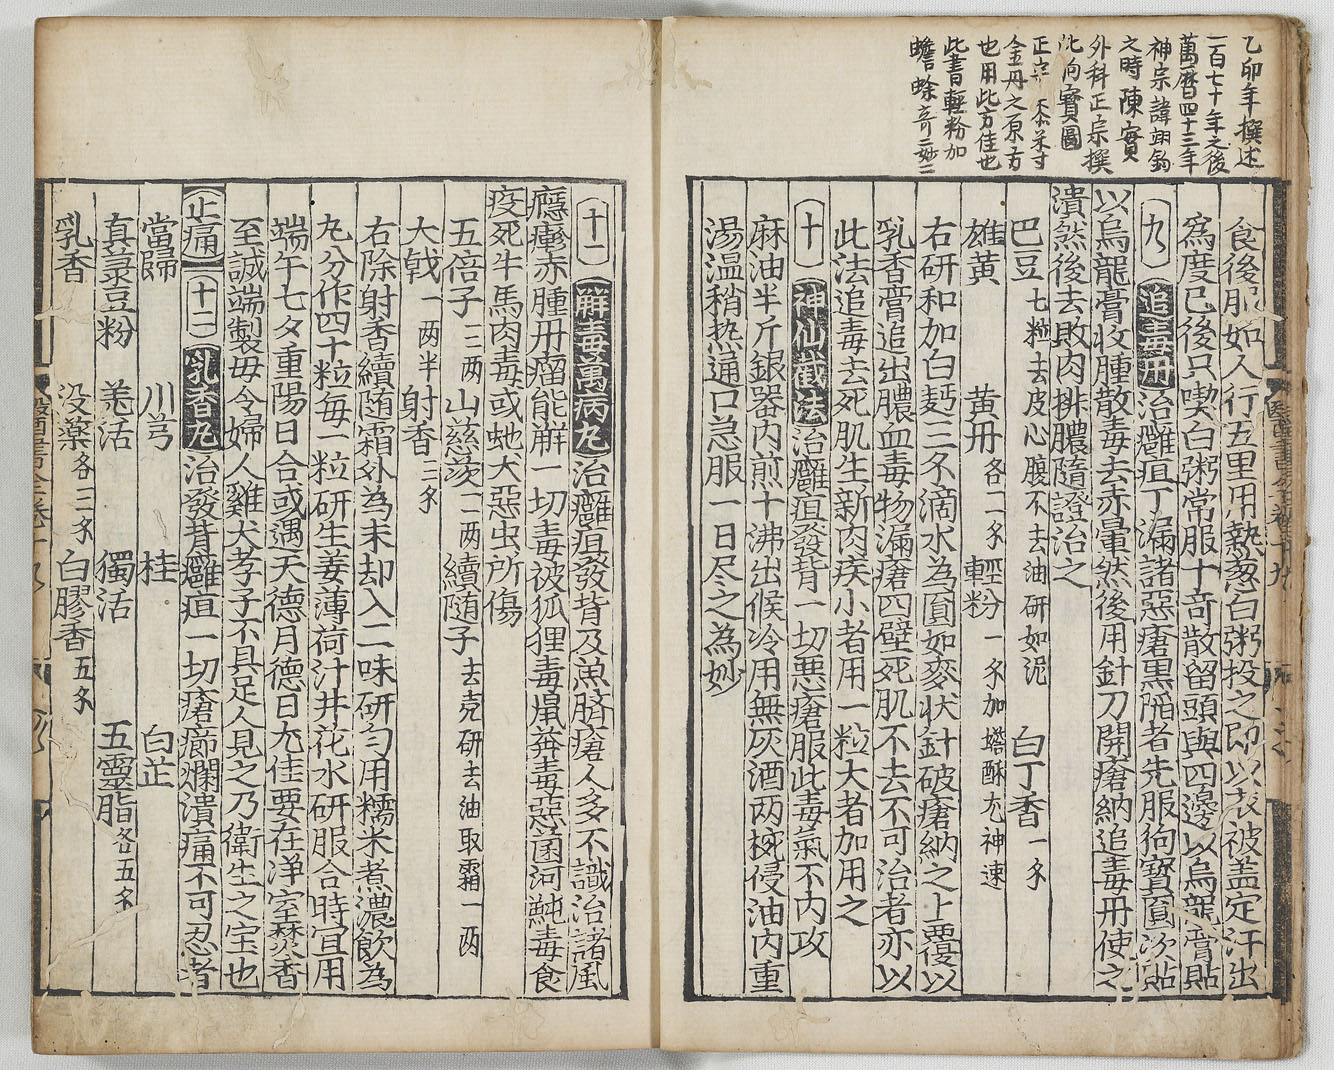 乙卯年撰述
一百七十年之後
萬曆四十三年
神宗諱翊鈞
之時陳實
外科正宗撰
狗寶圓
正
金丹之原方
也用此方佳也
此書輕粉加
蟾蜍奇二妙二
食後服如人行五里用熱葱白粥投之即以衣被盖定汗出
為度已後只喫白粥常服十奇散留頭與四邊以烏龍膏貼
九 追毒丹 治癰疽丁漏諸惡瘡黒陷者先服狗寶圓次貼
以烏龍膏收腫散毒去赤暈然後用針刀開瘡納追毒丹使之
潰然後去敗肉排膿隨證治之
巴豆 七粒去皮心膜不去油研如泥 白丁香 一戔
雄黄 黄丹 各二戔 輕粉 一戔加 蟾酥尤神速
右研和加白麪三戔滴水為圓如麥状針破瘡納之上覆以
乳香膏追出膿血毒物漏瘡四壁死肌不去不可治者亦以
此法追毒去死肌生新肉疾小者用一粒大者加用之
十 神仙截法 治癰疽發背一切惡瘡服此毒氣不内攻
麻油半斤銀器内煎十沸出候冷用無灰酒两椀侵油内重
湯温稍热通口急服一日尽之為妙
十一 解毒萬病丸 治癰疽發背及魚臍瘡人多不識治諸風
癮瘮赤腫丹瘤能觧一切毒被狐狸毒鼠莽毒惡菌河魨毒食
疫死牛馬肉毒或虵犬惡虫所傷
五倍子 三两 山慈菰 二两 續随子 去壳研去油取霜一两
大戟 一两半 射香 三戔
右除射香續随霜外為末却入二味研匀用糯米煮濃飲為
丸分作四十粒每一粒研生姜薄荷汁井花水研服合時宜用
端午七夕重陽日合或遇天德月德日尤佳要在淨室焚香
至誠端製毋令婦人雞犬孝子不具足人見之乃衛生之宝也
止痛 十二 乳香丸 治發背癰疽一切瘡癤爛潰痛不可忍者
當歸 川芎 桂 白芷
真菉豆粉 羌活 獨活 五靈脂 各五戔
乳香 没藥 各三戔 白膠香 五戔